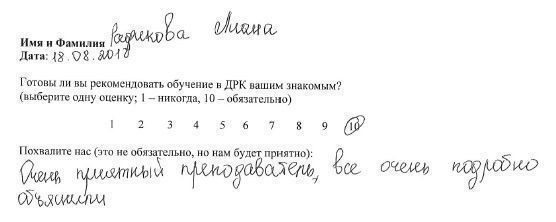 Имя и Фамилия Лиана
Дата: 18.08.2018
Готовы ли вы рекомендовать обучение в ДРК вашим знакомым?
(выберите одну оценку; 1 – никогда, 10 – обязательно)
1 2 3 4 5 6 7 8 9 10
Похвалите нас (это не обязательно, но нам будет приятно):
Очень приятный преподаватель, все очень подробно
объяснили